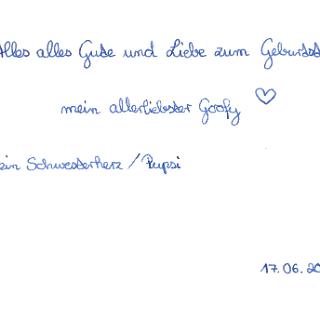 Alles alles Gute und Liebe zum Geburtst
mein allerliebster Goofy ♡
ein Schwesterherz / Pupsi
17.06.20